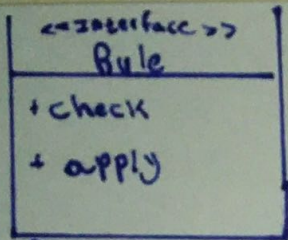 <<Interface>>
Rule
+ check
+ apply